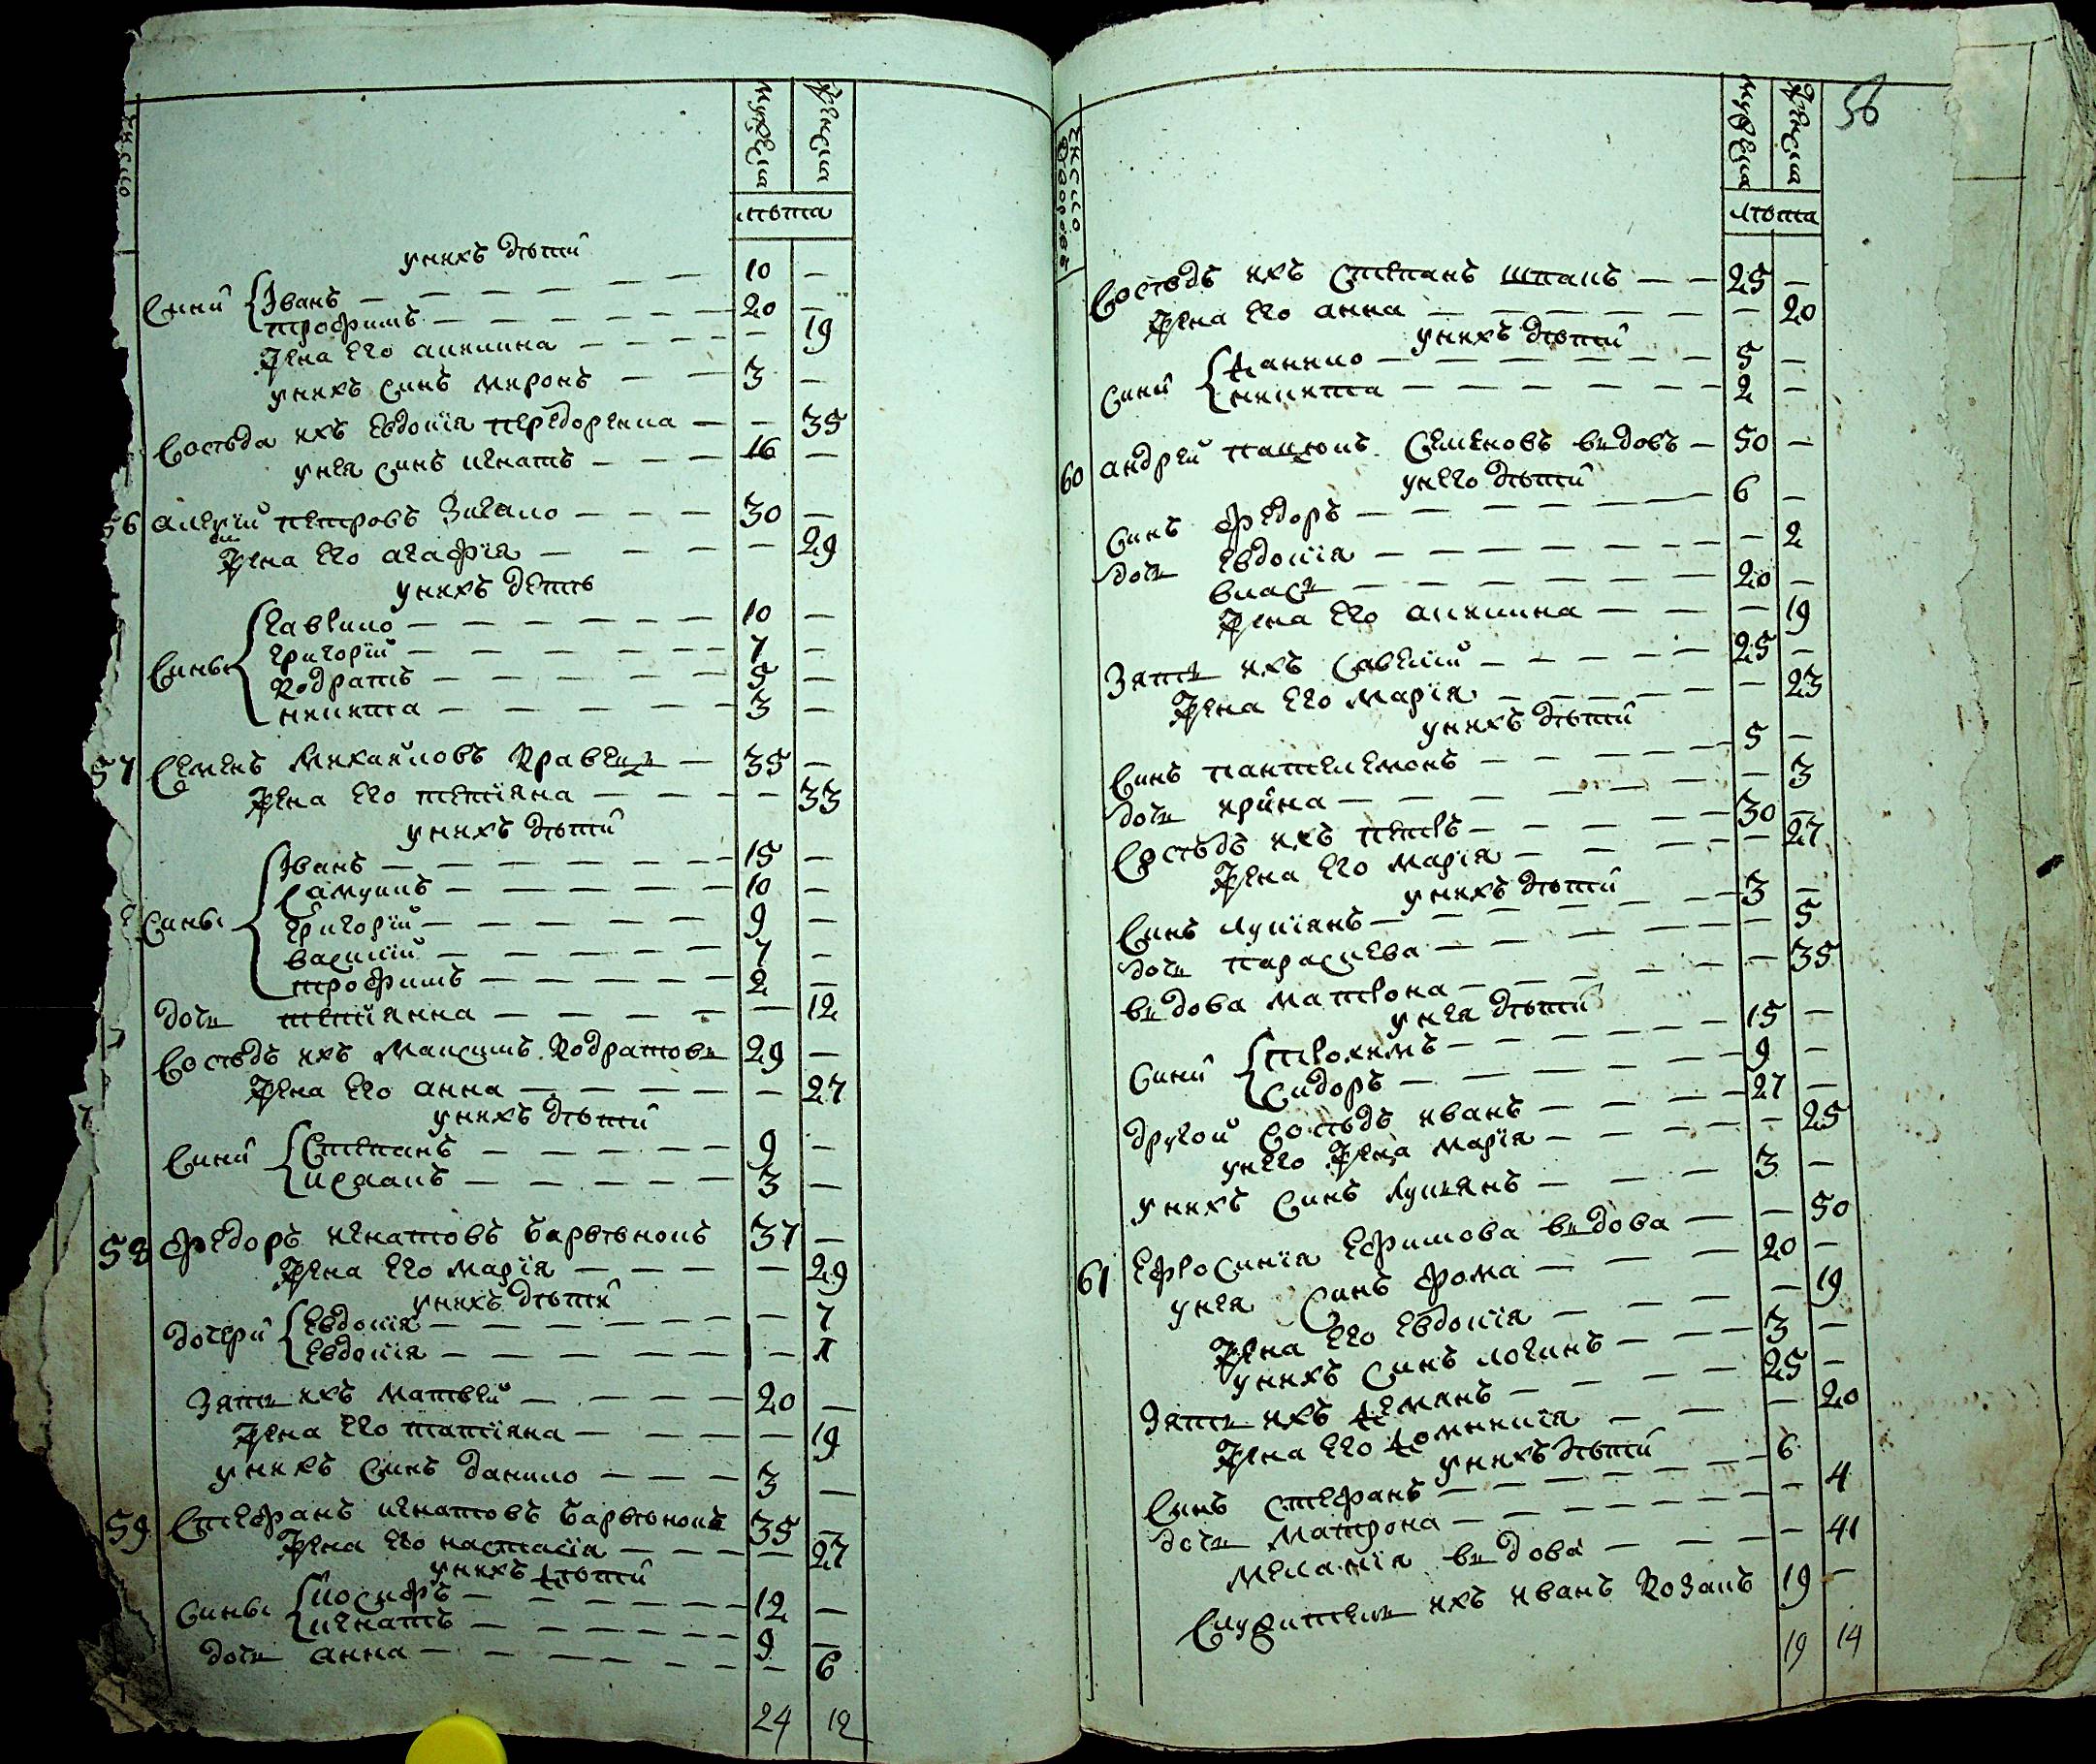 число
мужеска
женска
лѣта
у нихъ дѣти
Сини Іванъ — 10 —
трофимъ — 20 —
жена его акилина — — 19
у нихъ синъ миронъ — 3 —
Сосѣда ихъ Евдокія — — 35
у нея синъ игнатъ — 16 —
56 петровъ Зигало — 30 —
жена его агафія — — 29
у нихъ дѣть
Сины гаврило — 10 —
григорій — 7 —
Кодратъ — 5 —
никита — 3 —
57 Семенъ Михайловъ Кравецъ — 35 —
жена его тетіяна — — 33
у нихъ дѣти
Сины Іванъ — 15 —
Самуилъ — 10 —
григорій — 9 —
василій — 7 —
трофимъ — 2 —
дочь тетіянна — — 12
Сосѣдъ ихъ Максимъ Кодратовъ 29 —
жена его анна — — 27
у нихъ дѣти
Сини Степанъ — 9 —
3 —
58 федоръ игнатовъ 37 —
жена его марія — — 29
у нихъ дѣти
дочери Евдокія — — 7
Евдокія — — 1
Зять ихъ матвей — 20 —
жена его татіяна — — 19
у нихъ синъ данило — 3 —
59 Стефанъ игнатовъ 35 —
жена его настасія — — 27
у нихъ дѣти
Сины йосифъ — 12 —
игнатъ — 9 —
дочь анна — — 6
24 12
56
число дворовъ
мужеска
женска
лѣта
Сосѣдъ ихъ Степанъ шпакъ — 25 —
жена его анна — — 20
у нихъ дѣти
Сини данило — 5 —
никита — 2 —
60 андрей Семеновъ вдовъ — 50 —
у него дѣти
Синъ федоръ — 6 —
дочь Евдокія — — 2
власъ — 20 —
жена его акилина — — 19
Зять ихъ Савелій — 25 —
жена его марія — — 23
у нихъ дѣти
Синъ пантелемонъ — 5 —
дочь ирина — — 3
Сосѣдъ ихъ петръ — 30 —
жена его марія — — 27
у нихъ дѣти
Синъ лукіянъ — 3 —
дочь параскева — — 5
вдова матрона — — 35
у нея дѣти
Сини трохимъ — 15 —
Сидоръ — 9 —
другой сосѣдъ иванъ — 27 —
у него жена марія — — 25
у нихъ синъ лукянъ — 3 —
61 Ефросинія Ефимова вдова — — 50
у нея Синъ фома — 20 —
жена его Евдокія — — 19
у нихъ Синъ логинъ — 3 —
Зять ихъ демянъ — 25 —
жена его домникія — — 20
у нихъ дѣти
Синъ стефанъ — 6 —
дочь матрона — — 4
меланія вдова — — 41
Служитель ихъ иванъ Козакъ 19 —
19 14